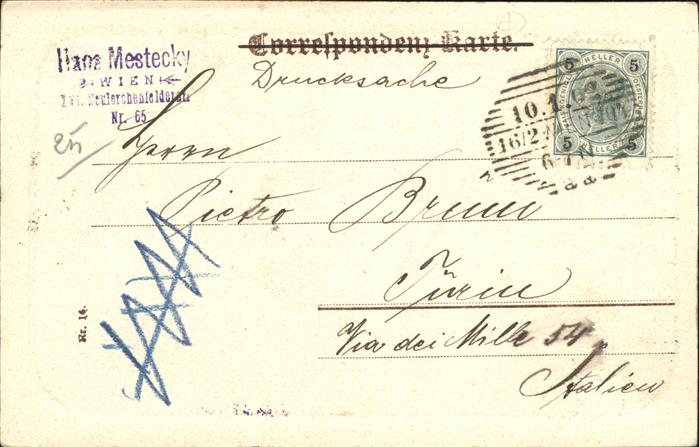 Correspondenz Karte.
Drucksache
Hans Mestecky
WIEN
XVI. Neulerchenfelderstr.
Nr. 65
5 HELLER 5
5 HELLER 5
10.1
16/2
6
Herrn
Pietro Brunu
Turin
Via dei Mille 54
Italien
Nr. 14.